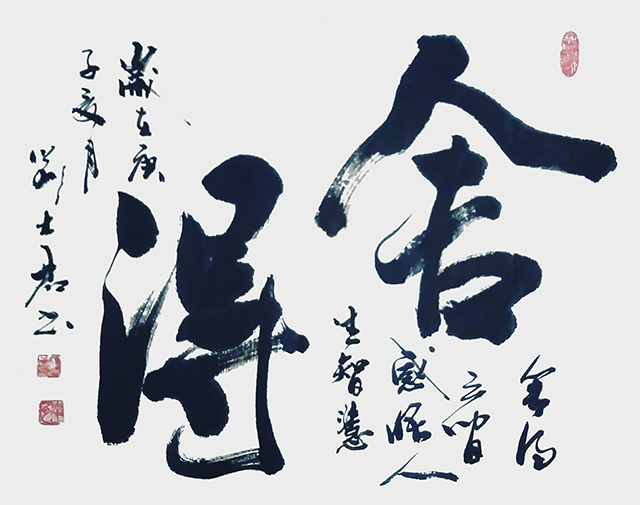 舍得
舍得
之间
感悟人
生智慧
歲在庚
子夏月
劉士君书